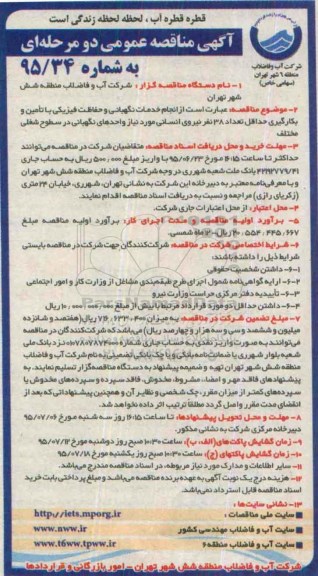 قطره قطره آب، لحظه لحظه زندگی است
آگهی مناقصه عمومی دو مرحله‌ای
به شماره ۹۵/۳۴
شرکت آب وفاضلاب
منطقه ۶ شهر تهران
(سهامی خاص)
۱- نام دستگاه مناقصه گزار : شرکت آب و فاضلاب منطقه شش
شهر تهران
۲- موضوع مناقصه: عبارت است از انجام خدمات نگهبانی و حفاظت فیزیکی با تامین و
بکارگیری حداقل تعداد ۳۸ نفر نیروی انسانی مورد نیاز واحدهای نگهبانی در سطوح شغلی
مختلف
۳- مهلت خرید و محل دریافت اسناد مناقصه: متقاضیان شرکت در مناقصه می‌توانند
حداکثر تا ساعت ۱۶:۱۵ مورخ ۹۵/۰۶/۲۳ با واریز مبلغ ۵۰۰,۰۰۰ ریال به حساب جاری
بانک ملت شعبه شهرری در وجه شرکت آب و فاضلاب منطقه شش شهر تهران
و با معرفی‌نامه معتبر به دبیرخانه این شرکت به نشانی تهران، شهرری، خیابان ۲۴ متری
(زکریای رازی) مراجعه و نسبت به دریافت اسناد مناقصه اقدام نمایند.
۴- محل اعتبار: از محل اعتبارات جاری شرکت.
۵- برآورد اولیه مناقصه و مدت اجرای کار: برآورد اولیه مناقصه مبلغ
ریال - ۱۲ ماه شمسی.
۶- شرایط اختصاصی شرکت در مناقصه: شرکت‌کنندگان جهت شرکت در مناقصه بایستی
شرایط ذیل را داشته باشند:
۶-۱- داشتن شخصیت حقوقی
۶-۲- ارایه گواهی‌نامه شمول اجرای طرح طبقه‌بندی مشاغل از وزارت کار و امور اجتماعی
۶-۳- تأییدیه دفتر مرکزی حراست وزارت نیرو
۶-۴- داشتن حداقل دو مورد قرارداد مرتبط با بیش از مبلغ ۱۰,۰۰۰,۰۰۰,۰۰۰ ریال
۷- مبلغ تضمین شرکت در مناقصه: به میزان ریال (هفتصد و شانزده
میلیون و ششصد و سی و سه هزار و چهارصد ریال) می‌باشد که شرکت‌کنندگان در مناقصه
می‌توانند به صورت واریز نقدی به حساب جاری شماره نزد بانک ملی
شعبه بلوار شهرری یا ضمانت‌نامه بانکی و یا چک بانکی تضمینی به نام شرکت آب و فاضلاب
منطقه شش شهر تهران تهیه و ضمیمه پیشنهاد به دستگاه مناقصه‌گزار تسلیم نمایند. به
پیشنهادهای فاقد مهر و امضا، مشروط، مخدوش، فاقد سپرده و سپرده‌های مخدوش یا
سپرده‌های کمتر از میزان مقرر، چک شخصی و نظایر آن و همچنین پیشنهاداتی که بعد از
انقضای مدت مقرر واصل گردد مطلقا ترتیب اثر داده نخواهد شد.
۸- مهلت و محل تحویل پیشنهادها: تا ساعت ۱۶:۱۵ روز سه شنبه مورخ ۹۵/۰۷/۰۶
دبیرخانه مرکزی شرکت به نشانی مذکور.
۹- زمان گشایش پاکت‌های(الف، ب): ساعت ۱۰:۳۰ صبح روز دوشنبه مورخ ۹۵/۰۷/۱۲
۱۰- زمان گشایش پاکتهای (ج): ساعت ۱۰:۳۰ صبح روز یکشنبه مورخ ۹۵/۰۷/۱۸
۱۱- سایر اطلاعات و مدارک مورد نیاز مربوطه، در اسناد مناقصه مندرج می‌باشد.
۱۲- هزینه درج یک نوبت آگهی به عهده برنده مناقصه می‌باشد و مبلغ پرداختی بابت خرید
اسناد مناقصه قابل استرداد نمی‌باشد.
۱۳- نشانی سایت‌ها :
سایت ملی مناقصات ، http://iets.mporg.ir
سایت آب و فاضلاب مهندسی کشور www.nww.ir
سایت آب و فاضلاب منطقه ۶ www.t6ww.tpww.ir
شرکت آب و فاضلاب منطقه شش شهر تهران - امور بازرگانی و قراردادها